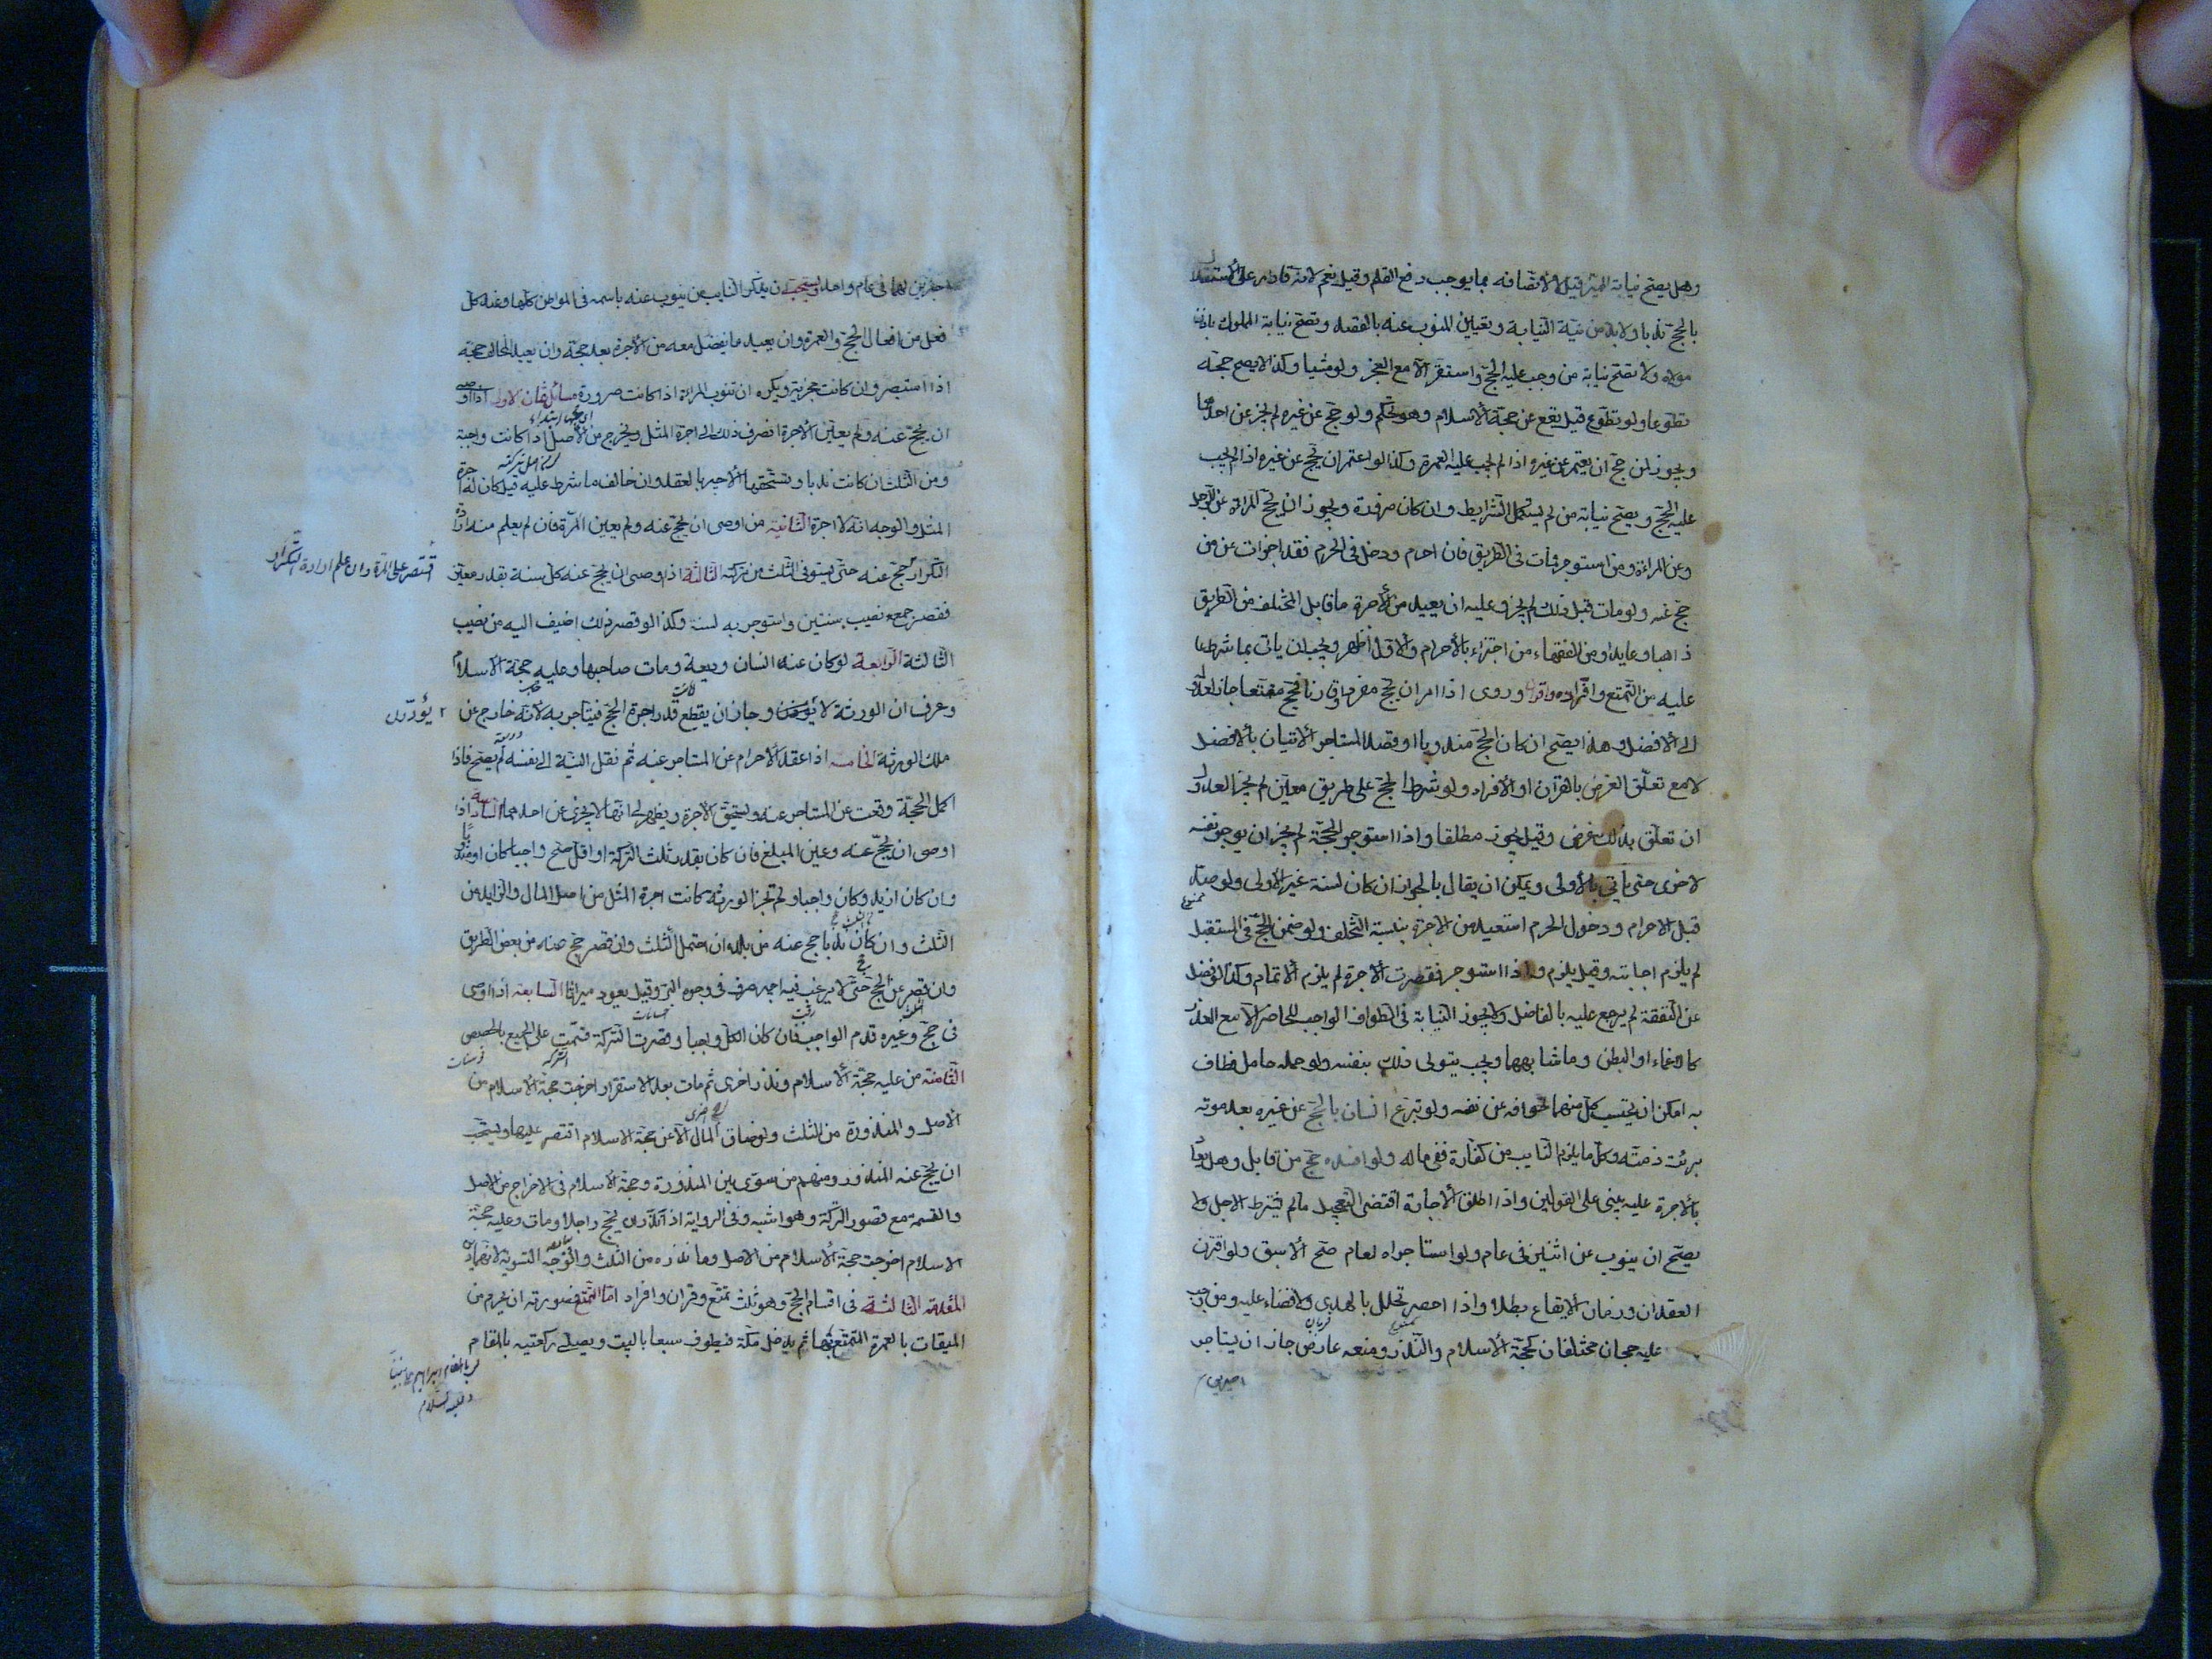 وهل يصح نيابة المميز قيل لا لاتصافه بما يوجب رفع القلم وقيل نعم لانه قادر على الاستقلال
بالحج ندبا ولابد من نية النيابة وتعيين المنوب عنه بالقصد وتصح نيابة المملوك باذن
مولاه ولا تصح نيابة من وجب عليه الحج واستقر الا مع العجز ولو مشيا وكذا لا يصح حجه
تطوعا ولو تطوع قيل يقع عن حجة الاسلام وهو تحكم ولو حج عن غيره لم يجز عن احدهما
ويجوز لمن حج ان يعتمر عن غيره اذا لم يجب عليه العمرة وكذا لو اعتمر ان يحج عن غيره اذا لم يجب
عليه الحج ويصح نيابة من لم يستكمل الشرايط وان كان صرورة ويجوز ان يحج المراة عن الرجل
وعن المراة ومن استوجر فمات في الطريق فان احرم ودخل في الحرم فقد اجزات عن من
حج عنه ولو مات قبل ذلك لم يجز وعليه ان يعيد من الأجرة ما قابل المتخلف من الطريق
ذاهبا وعايدا ومن الفقهاء من اجتزاء بالأحرام والأول اظهر ويجب ان ياتي بما شرط عا
عليه من التمتع وافراد وقران وروى اذا امر ان يحج مفردا او قارنا فحج متمتعا جاز لعدوله
الى الأفضل وهذا يصح ان كان الحج مندوبا او قصد المستاجر الأتيان بالأفضل
لا مع تعلق الغرض بالقران او الأفراد ولو شرط الحج على طريق معين لم يجز العدول
ان تعلق بذلك غرض وقيل يجوز مطلقا واذا استوجر لحجة لم يجز ان يوجر نفسه
لاخرى حتى ياتي بالأولى ويمكن ان يقال بالجواز ان كان لسنة غير الأولى ولو صد
ممنوع
قبل الاحرام ودخول الحرم استعيد من الاجرة بنسبة المتخلف ولو ضمن الحج في المستقبل
لم يلزم اجابته وقيل يلزم واذا استوجر فقصرت الأجرة لم يلزم الأتمام وكذا لو فضل
عن النفقة لم يرجع عليه بالفاضل ولا يجوز النيابة في الطواف الواجب للحاضر الا مع العذر
كالاغماء او البطن وما شابهها ويجب يتولى ذلك بنفسه ولو حمله حامل فطاف
به امكن ان يحتسب كل منهما طوافه عن نفسه ولو تبرع انسان بالحج عن غيره بعد موته
برئت ذمته وكل ما يلزم النايب من كفارة ففي ماله ولو افسده حج من قابل وهل يعاد
بالأجرة عليه يبنى على القولين واذا اطلق الأجارة اقتضى التعجيل ما لم يشترط الاجل ولا
يصح ان ينوب عن اثنين في عام ولو استاجراه لعام صح الأسبق ولو اقترن
العقدان وزمان الأيقاع بطلا واذا احصر تحلل بالهدي ولا قضاء عليه ومن وجب
عليه حجان مختلفان كحجة الأسلام والنذر ومنعه عارض جاز ان يستاجر
اجيرين
اجيرين لهما في عام واحد ويستحب ان يذكر النايب من ينوب عنه باسمه في المواطن كلها وعند كل
فعل من افعال الحج والعمرة وان يعيد ما يفضل معه من الأجرة بعد حجه وان يعيد المخالف حجه
اذا استبصر وان كانت مجزية ويكره ان تنوب المراة اذا كانت صرورة مسائل ثمان الاولى اذا اوصى
ان يحج عنه ولم يعين الأجرة انصرف ذلك الى اجرة المثل ويخرج من الأصل اذا كانت واجبة
ومن الثلث ان كانت ندبا ويستحقها الأجير بالعقد وان خالف ما شرط عليه قيل كان له اجرة
المثل والوجه انه لا اجرة الثانية من اوصى ان يحج عنه ولم يعين المرة فان لم يعلم منه ارادة
التكرار حج عنه حتى يستوفى الثلث من تركته الثالثة اذا اوصى ان يحج عنه كل سنة بقدر معين
اقتصر على المرة وان علم ارادة التكرار
فقصر جمع نصيب سنتين واستوجر به لسنة وكذا لو قصر ذلك اضيف اليه من نصيب
الثالثة الرابعة لو كان عند انسان وديعة ومات صاحبها وعليه حجة الاسلام
وعرف ان الورثة لا يؤدون جاز ان يقطع قدر اجرة الحج فيستاجر به لانه خارج عن
يؤدون
ملك الورثة الخامسة اذا عقد الأحرام عن المستاجر عنه ثم نقل النية الى نفسه لم يصح فاذا
اكمل الحجة وقعت عن المستاجر عنه ويستحق الأجرة ويظهر لي انها لا يجزى عن احدهما السادسة اذا
اوصى ان يحج عنه وعين المبلغ فان كان بقدر ثلث التركة او اقل صح واجبا كان او مندوبا
وان كان ازيد وكان واجبا ولم تجز الورثة كانت اجرة المثل من اصل المال والزايد من
الثلث وان كان ندبا حج عنه من بلده ان احتمل الثلث وان قصر حج عنه من بعض الطريق
وان قصر عن الحج حتى لا يرغب فيه اجير صرف في وجوه البر وقيل يعود ميراثا السابعة اذا اوصى
في حج وغيره قدم الواجب فان كان الكل واجبا وقصرت التركة قسمت على الجميع بالحصص
الثامنة من عليه حجة الأسلام ونذر اخرى ثم مات بعد الاستقرار اخرجت حجة الأسلام من
الأصل والمنذورة من الثلث ولو ضاق المال الا عن حجة الاسلام اقتصر عليها ويستحب
ان يحج عنه المنذور ومنهم من سوى بين المنذورة وحجة الأسلام في الاخراج من الاصل
والقسمة مع قصور التركة وهو اشبه وفي الرواية اذا نذر ان يحج رجلا ومات وعليه حجة
الاسلام اخرجت حجة الأسلام من الاصل وما نذره من الثلث والوجه التسوية لانهما دين
المقدمة الثالثة في اقسام الحج وهو ثلث تمتع وقران وافراد اما التمتع فصورته ان يحرم من
الميقات بالعمرة المتمتع بها ثم يدخل مكة فيطوف سبعا بالبيت ويصلى ركعتيه بالمقام